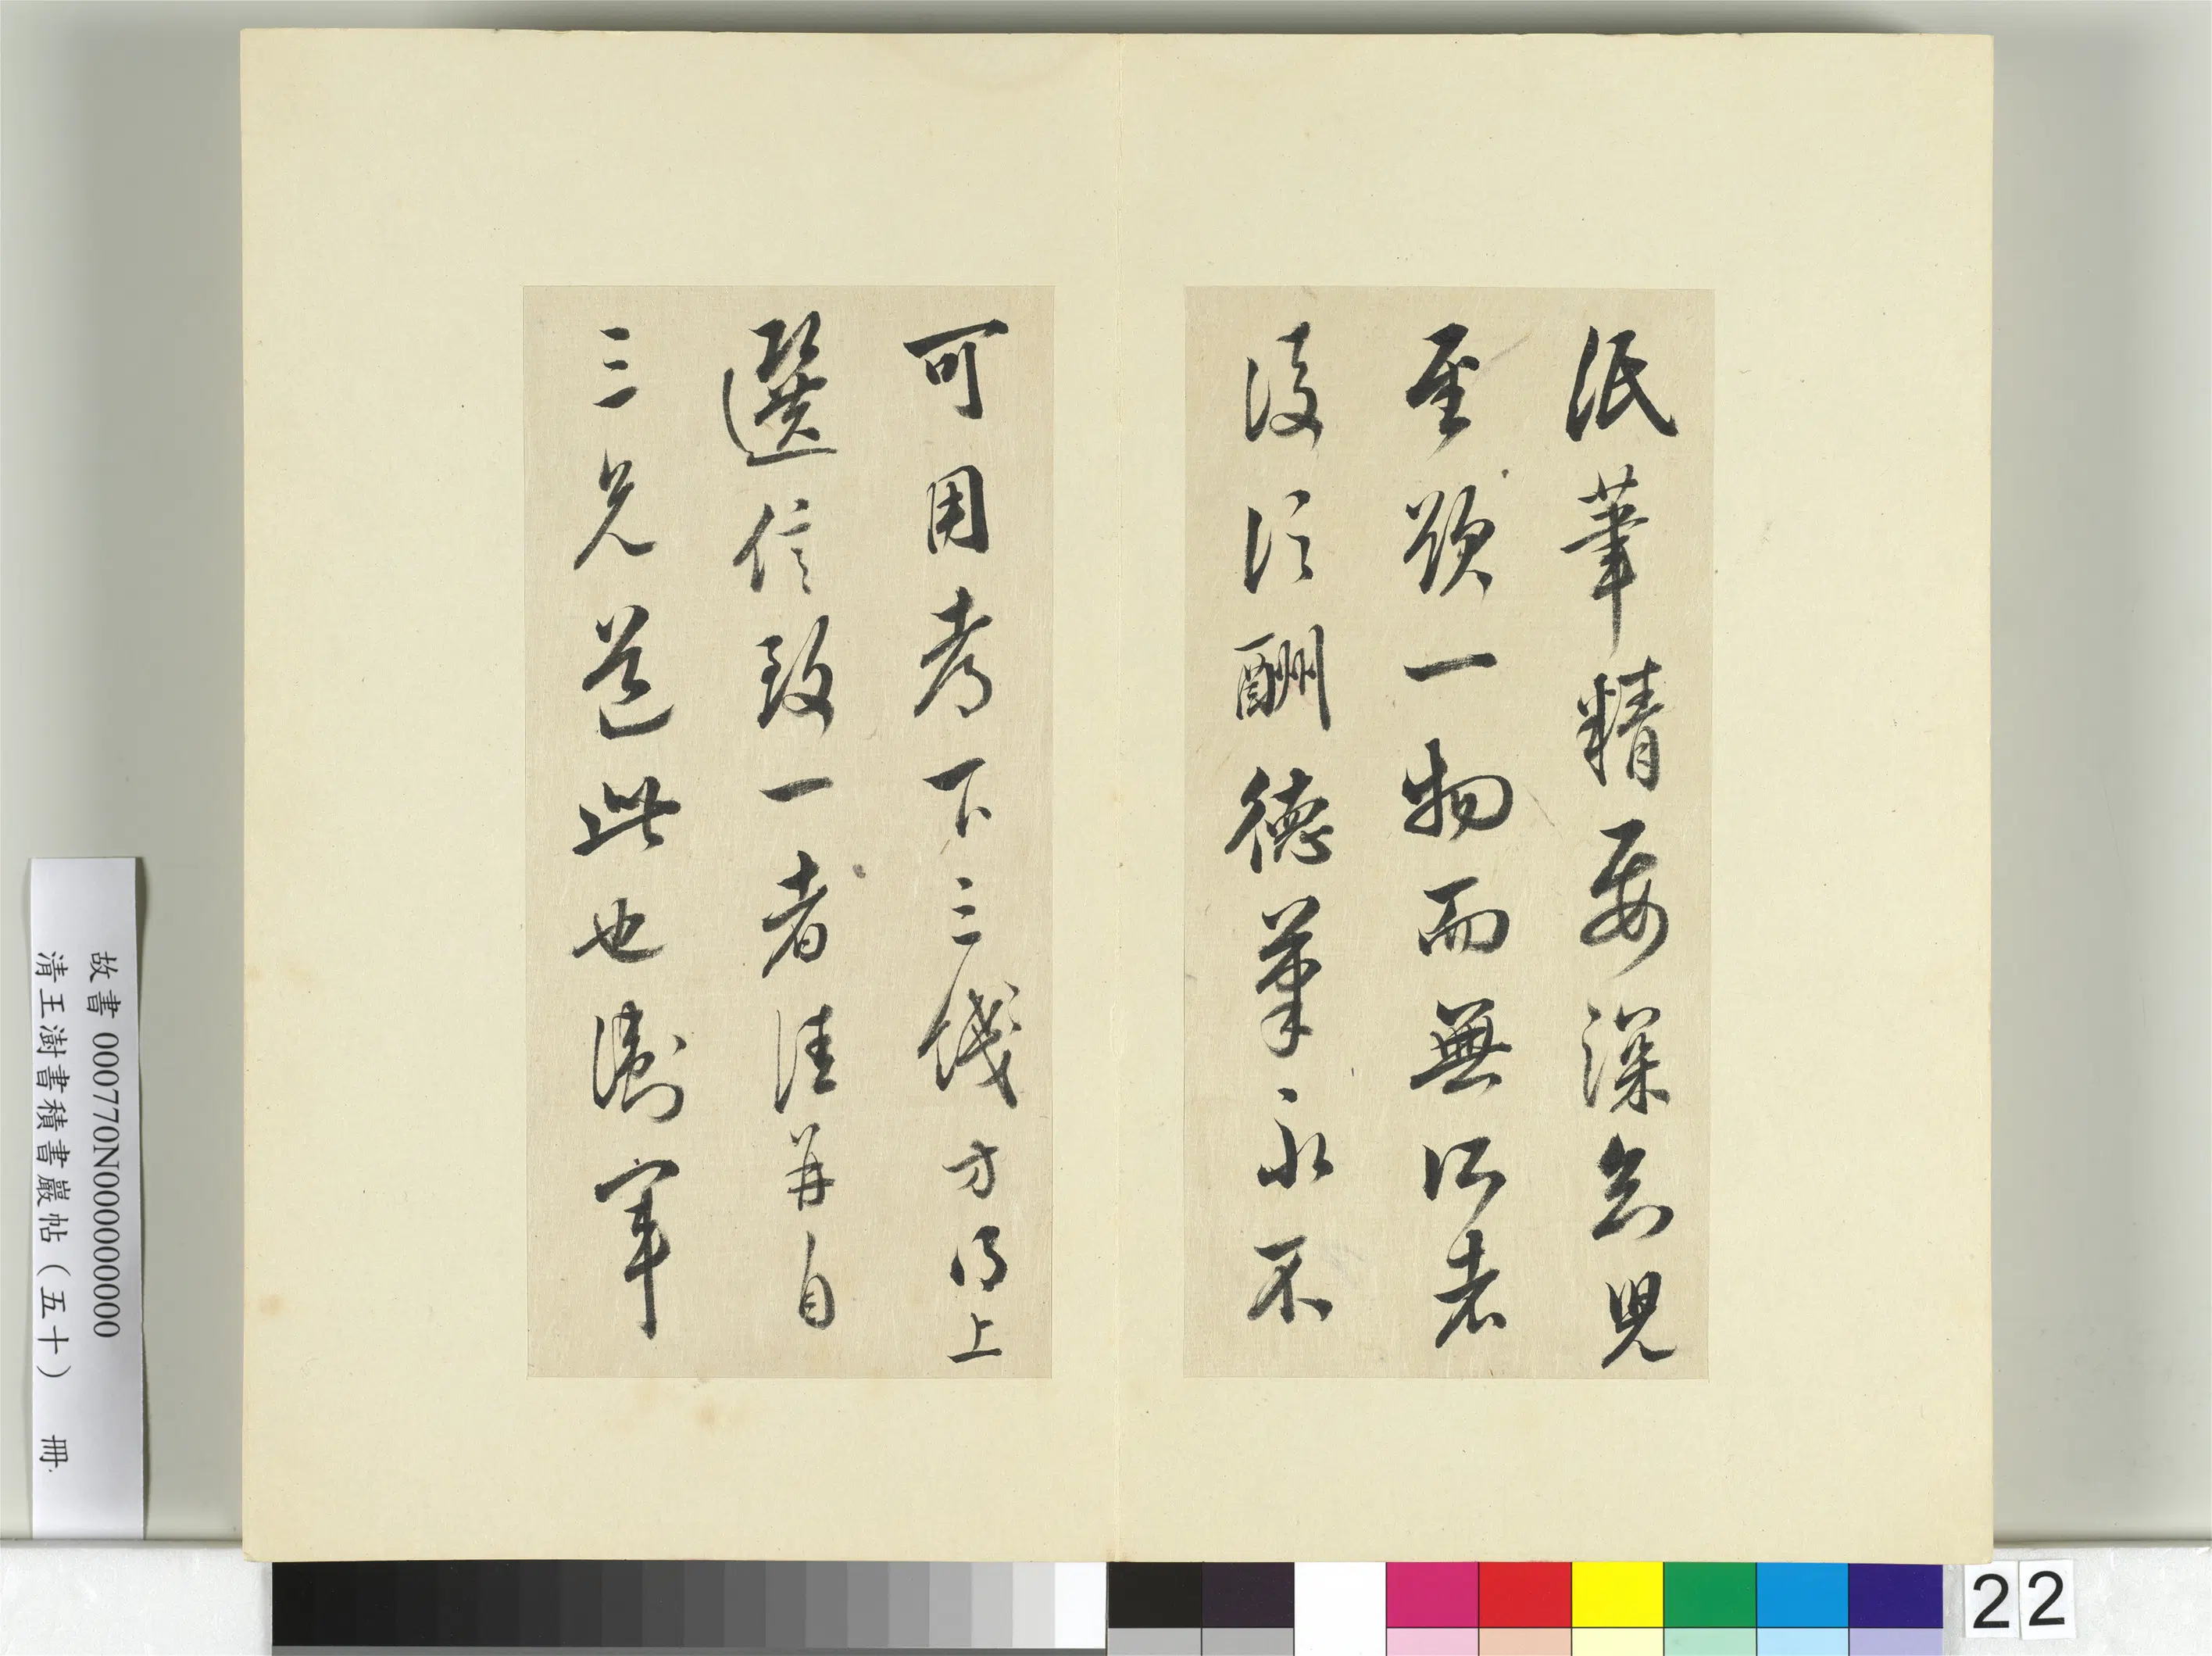 紙筆精要深玄兒
至頒一物而無以者
後信酬德筆永不
可用考下三錢方得上
選信致一者佳并自
三兄道此也濤軍
故書 000770N000000000
清王澍書積書巖帖（五十） 冊
22